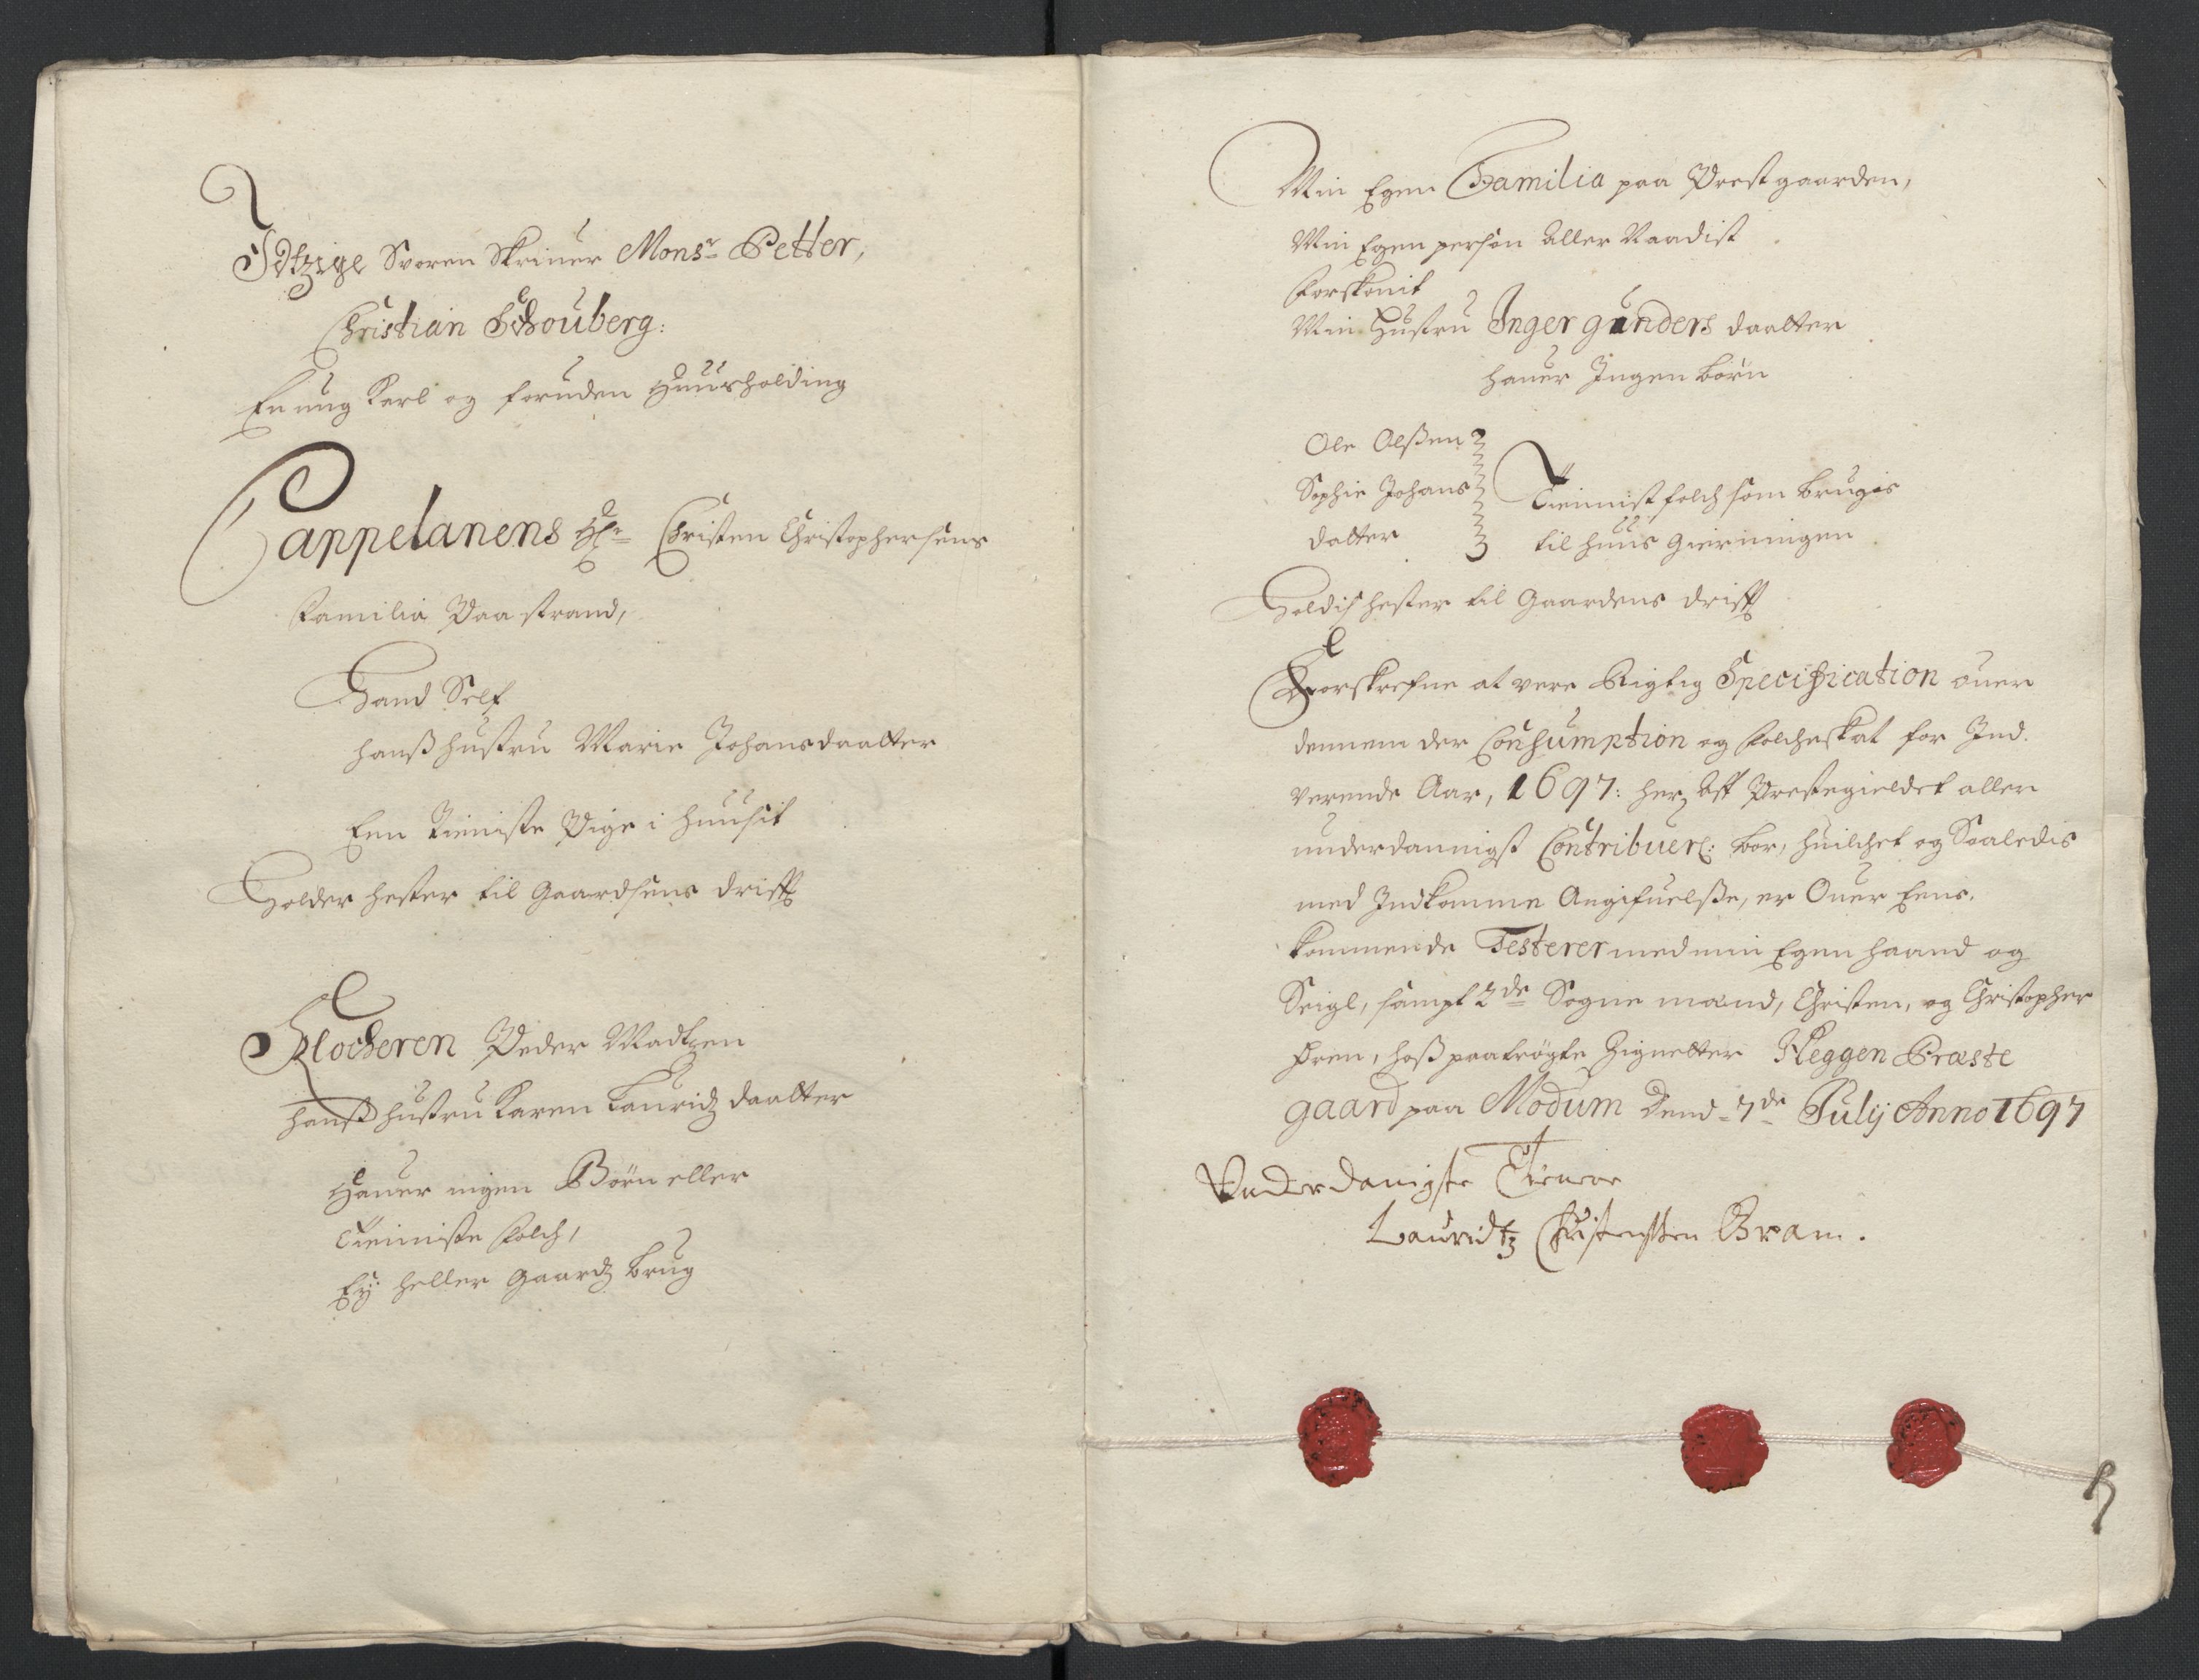 Idtzige Svoren Skriuer Monsr Petter,
Christian Schouberg:
En ung Karl og foruden Huusholding
Cappelanens Hr Christen Christophersens
Familia Paa strand,
Hand Self
hanß hustru Marie Johansdaatter
Een Tieniste Pige i huusit
Holder hester til Gaardsens drifft
Klocheren Peder Madtzen
hanß hustru Karen Lauridz daatter
Hauer ingen Börn eller
Tieniste folch,
Ey heller Gaardz brug
Min Egen Familia paa Prestgaarden,
Min Egen person Aller Naadist
forskonit
Min Hustru Inger gunders daatter
hauer Ingen börn
Ole Olßen
Sophie Johans
datter
Tienist folch som brugis
til huus gierningen
Holdis hester til Gaardens drifft
Forskrefne at vere Rigtig Specification ouer
dennem der Consumption og folcheskat for Ind.
verende Aar, 1697: her aff Prestegieldet aller
underdannigst Contribuere: bør, huilchet og Saaledis
med Indkomne Angifuelße, er Ouer Eens.
kommende Testerer med min Egen haand og
Seigl, sampt 2de Sogne mænd, Christen, og Christopher
hoß paatrögte Zignetter Heggen Præste
gaard paa Modum Dend 7de Julij Anno 1697
Underdanigste Tienere
Lauridtz Christenßen Bram.